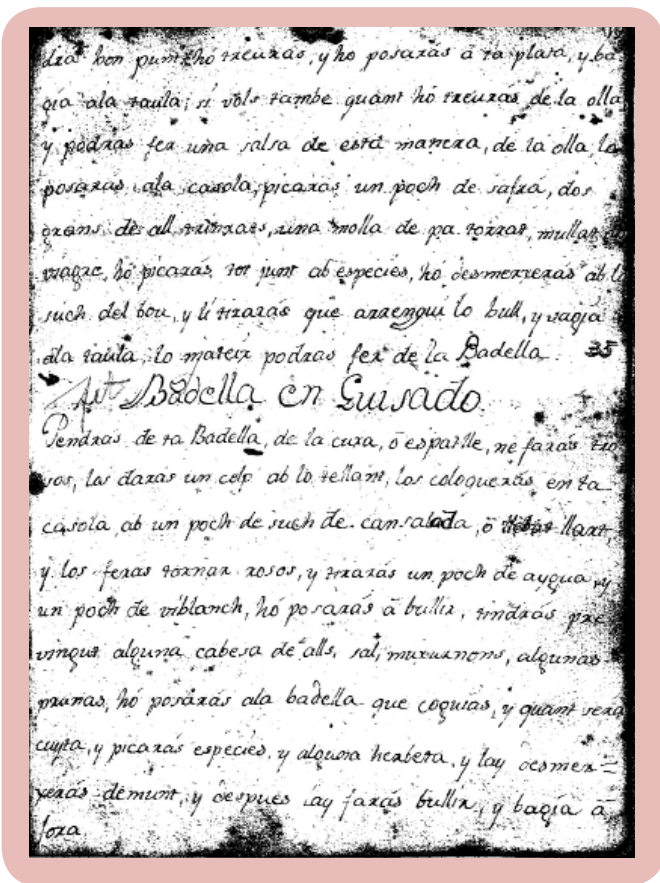 drá bon punt hó treuras, y ho posarás á ta plata, y ba
gia ala taula; si vols tambe quant hó treuras de la olla
y podras fer una salsa de esta manera, de la olla la
posaras ala casola, picaras un poch de safrá, dos
grans de all trinxats, una molla de pa torrat, mullat
vinagre, hó picarás tot junt ab especies, ho desmerxeras ab l
such del bou, y li tiraras que arrengui lo bull, y vagia
ala taula, lo mateix podras fer de la Badella. 35
Badella en Guisado.
Pendras de ta Badella, de la cuxa, ó espatlle, ne farás tro
sos, los daras un colp ab lo tellant, los coloquerás en ta
casola ab un poch de such de cansalada, ó llart,
y los feras tornar rosos, y tirarás un poch de aygua, y
un poch de viblanch, hó posarás á bullir, tindrás pre
vingut alguna cabesa de alls, sal, muxurnons, algunas
prunas, hó posárás ala badella que coguias, y quant sera
cuyta, y picarás especies, y alguna herbeta, y lay desmer=
xerás demunt, y despues lay farás bullir, y bagia á
fora